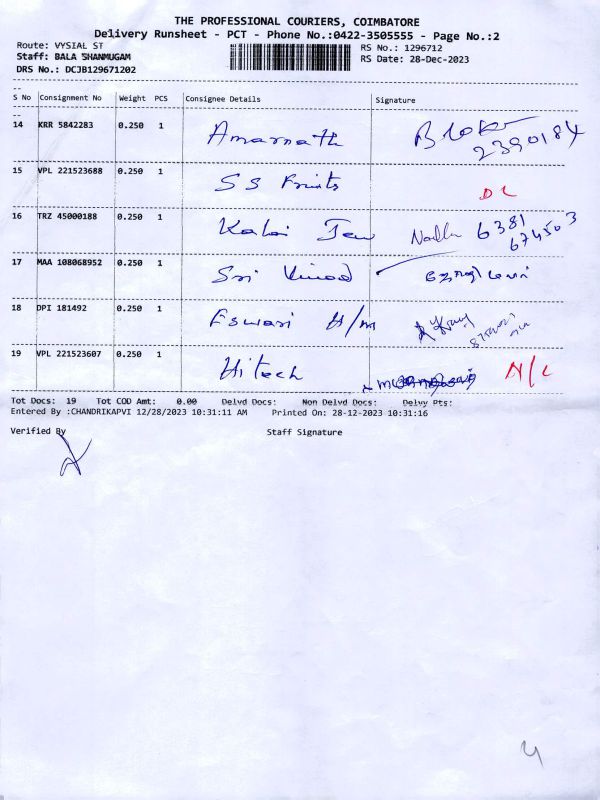 THE PROFESSIONAL COURIERS, COIMBATORE
Delivery Runsheet - PCT - Phone No.:0422-3505555 - Page No.:2
Route: VYSIAL ST RS No.: 1296712
Staff: BALA SHANMUGAM RS Date: 28-Dec-2023
DRS No.: DCJB129671202
S No Consignment No Weight PCS Consignee Details Signature
14 KRR 5842283 0.250 1 Amarnath
15 VPL 221523688 0.250 1 S S Fruits DL
16 TRZ 45000188 0.250 1 6381
674503
17 MAA 108068952 0.250 1 Sri Vinod
18 DPI 181492 0.250 1 Eswari H/m
19 VPL 221523607 0.250 1 Hitech N/L
Tot Docs: 19 Tot COD Amt: 0.00 Delvd Docs: Non Delvd Docs: Delvy Pts:
Entered By :CHANDRIKAPVI 12/28/2023 10:31:11 AM Printed On: 28-12-2023 10:31:16
Verified By Staff Signature
4